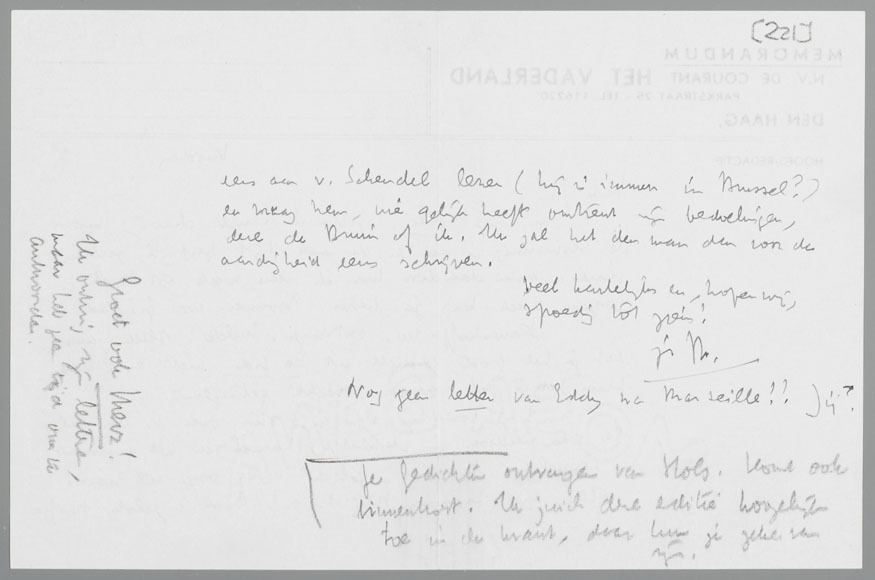 [221]
MEMORANDUM
N.V. DE COURANT HET VADERLAND
PARKSTRAAT 25 - TEL. 116220
DEN HAAG,
HOOFD-REDACTIE
eens aan v. Schendel lezen (hij is immers in Brussel?)
en vraag hem, wie gelijk heeft omtrent zijn bedoelingen,
deze de Bruin of ik. Ik zal het den man dan voor de
aardigheid eens schrijven.
Veel hartelijks en, hopen wij,
spoedig tot ziens!
je M.
Nog geen letter van Eddy na Marseille!! Jij?
Je gedichten ontvangen van Hols. Komt ook
binnenkort. Ik juich deze editie hoogelijk
toe in de krant, daar kun je zeker van
zijn.
Groet ook Merz!
Ik ontving zijn lettre,
maar heb geen tijd om te
antwoorden.